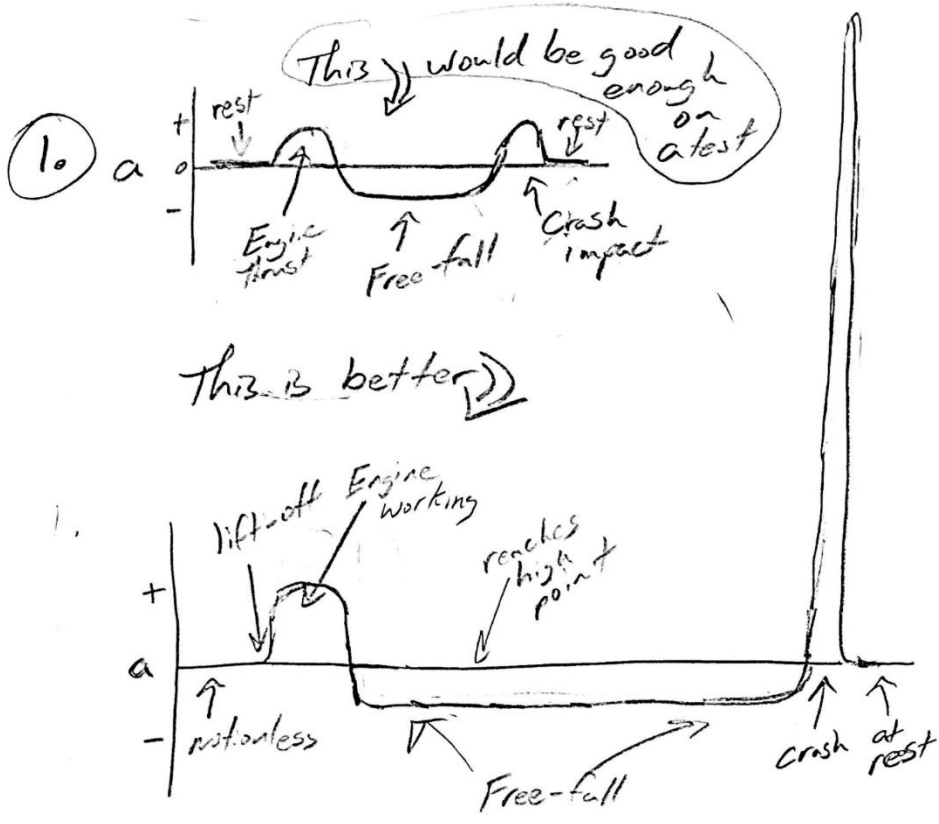 This would be good
enough
on
a test
1.
a
+
0
-
rest
Engine
thrust
Free-fall
Crash
impact
rest
This is better
lift-off
Engine
working
reaches
high
point
+
a
-
motionless
Free-fall
crash
at
rest